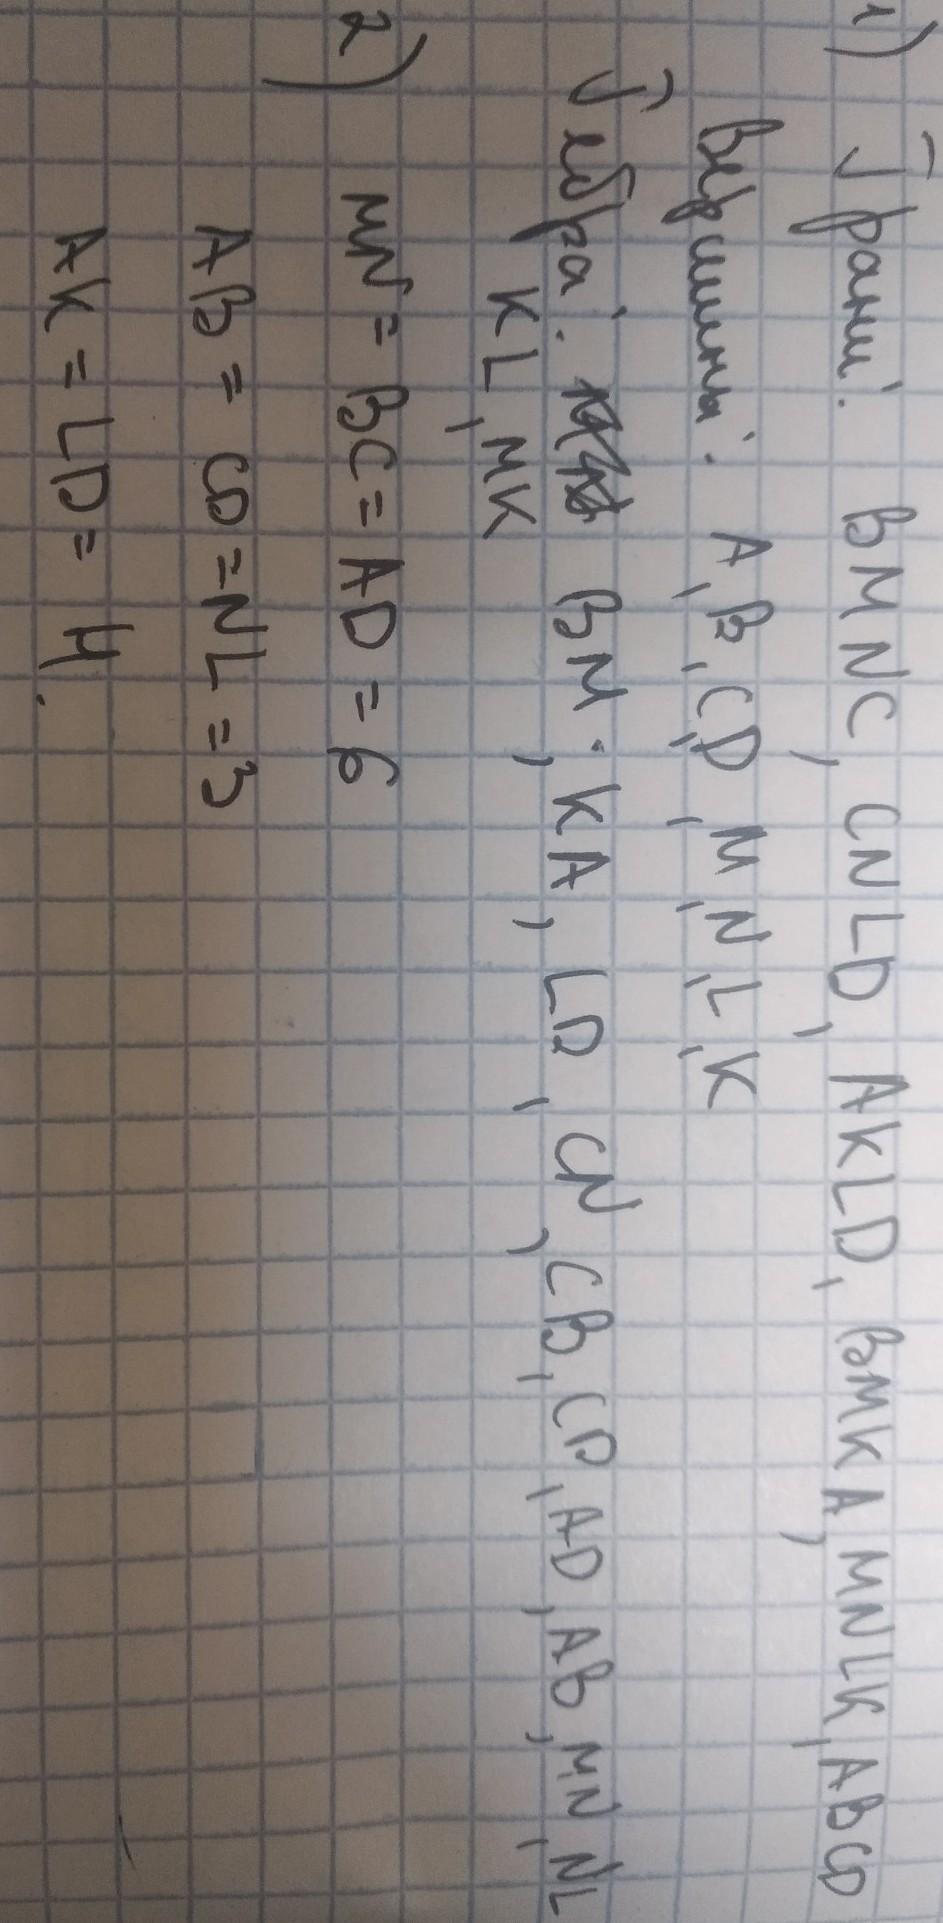 1) Грани: BMNC, CNLD, AKLD, BMKA, MNLK, ABCD
Вершины: A, B, C, D, M, N, L, K
Ребра: BM, KA, LD, CN, CB, CD, AD, AB, MN, NL
KL, MK
2) MN = BC = AD = 6
AB = CD = NL = 3
AK = LD = 4.